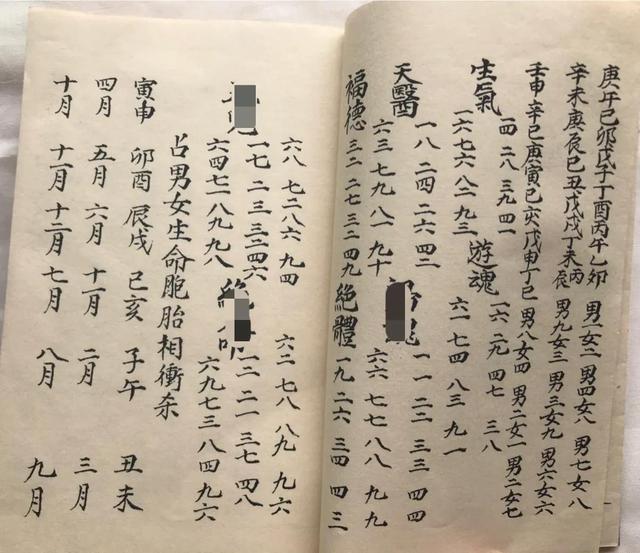 庚午巳卯戊子丁酉丙午乙卯 男一女二 男四女八 男七女八
辛未庚辰巳丑戊戌丁未丙辰 男九女三 男三女九 男六女六
壬申辛巳庚寅巳亥戊申丁巳 男八女四 男二女一 男二女七
生氣
一四 二八 三九 四一
一六 七六 八二 九三
遊魂
一六 二九 四七 三八
六一 七四 八三 九一
天醫
一八 二四 二六 四二
六三 七九 八一 九十
一一 二二 三三 四四
六六 七七 八八 九九
福德
三二 二七 三二 四九
六八 七二 八六 九四
絕體
一九 二六 三四 四三
六二 七八 八九 九六
一七 二三 三二 四六
六四 七一 八九 九八
一二 二一 三七 四八
六九 七三 八四 九六
占男女生命胞胎相衝杀
寅申 卯酉 辰戌 巳亥 子午 丑未
四月 五月 六月 十一月 二月 三月
十月 十一月 十二月 七月 八月 九月